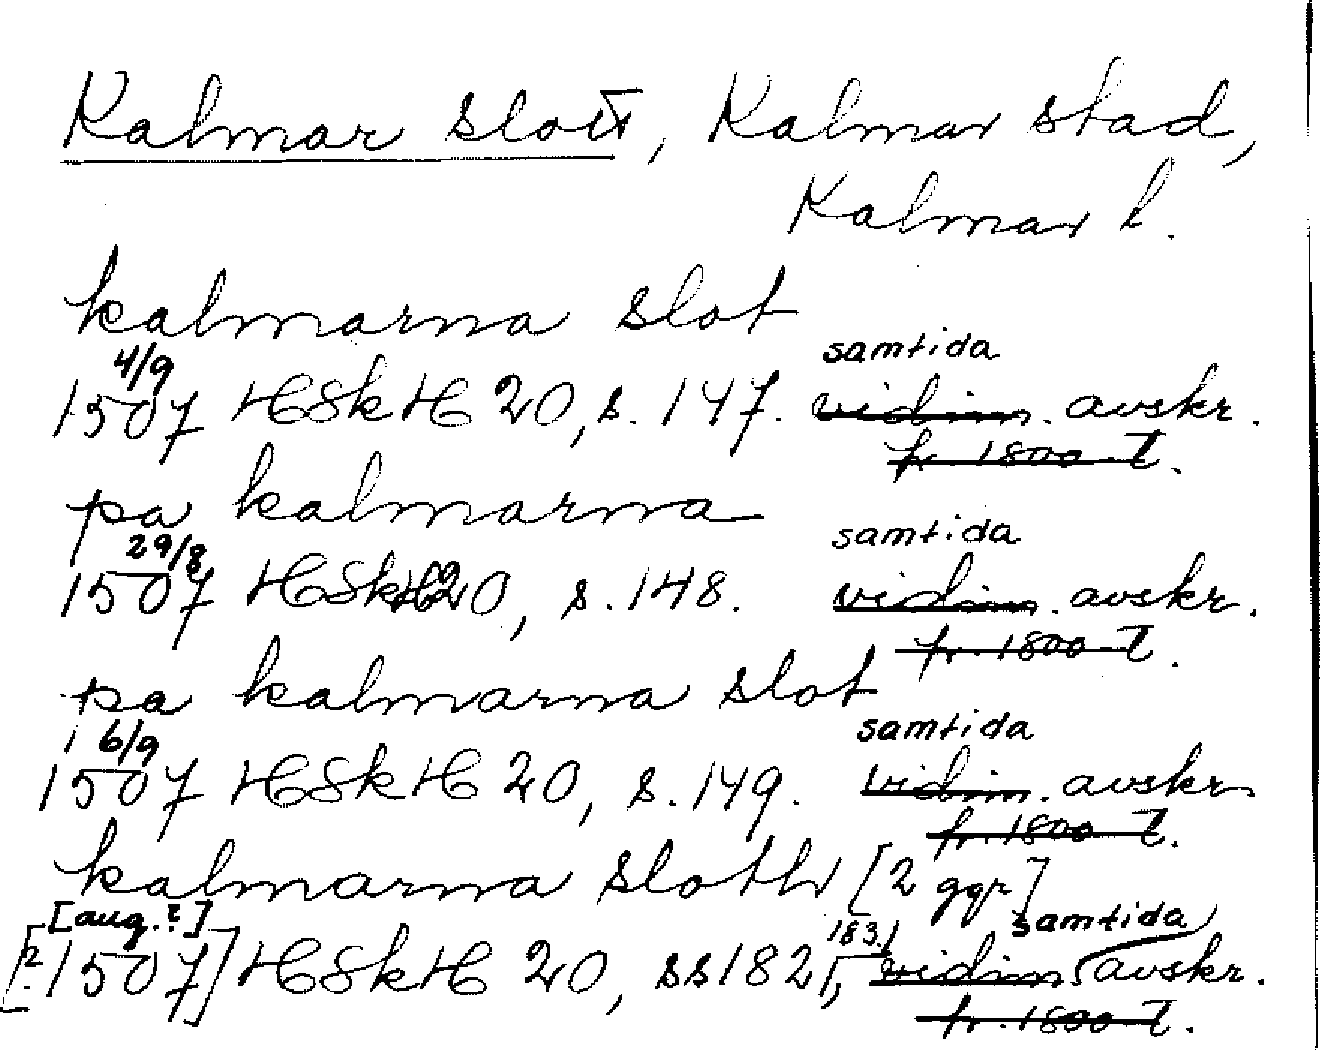 Kalmar slott, Kalmar stad,
Kalmar l.
kalmarna slot
4/9 samtida
1507 HSkH 20, s. 147. vidim. avskr.
fr. 1800-t.
pa kalmarna
29/8 samtida
1507 HSkH 20, s. 148. vidim. avskr.
fr. 1800-t.
pa kalmarna slot
6/9 samtida
1507 HSkH 20, s. 149. vidim. avskr
fr. 1800-t.
kalmarna sloth [2 ggr]
[aug.?] 183 samtida
[? 1507] HSkH 20, ss 182, vidim. avskr.
fr. 1800-t.